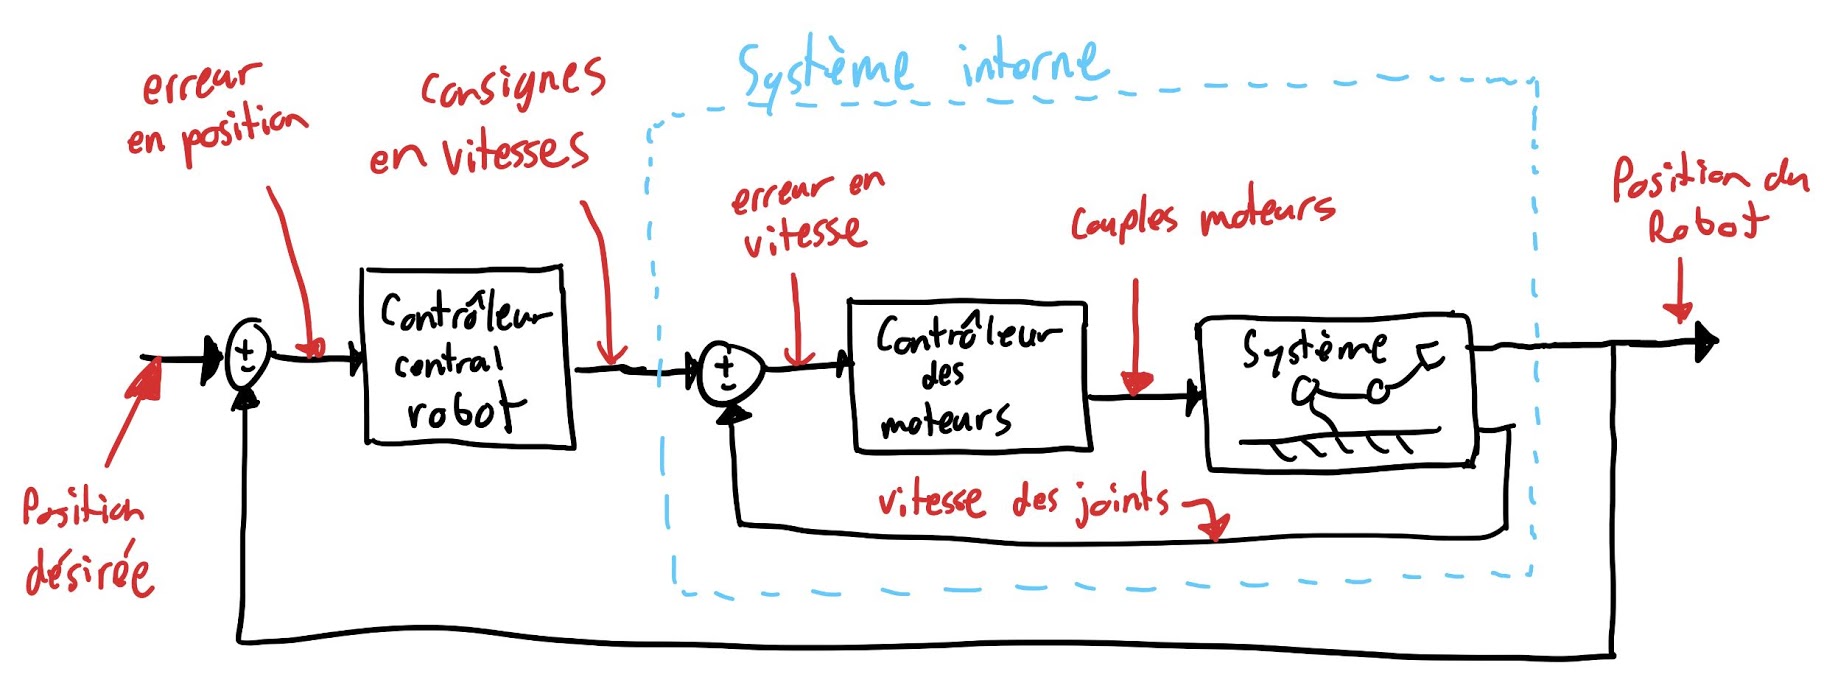 Système interne
erreur
en position
Consignes
en vitesses
erreur en
vitesse
Couples moteurs
Position du
Robot
±
Contrôleur
central
robot
±
Contrôleur
des
moteurs
Système
vitesse des joints
Position
désirée